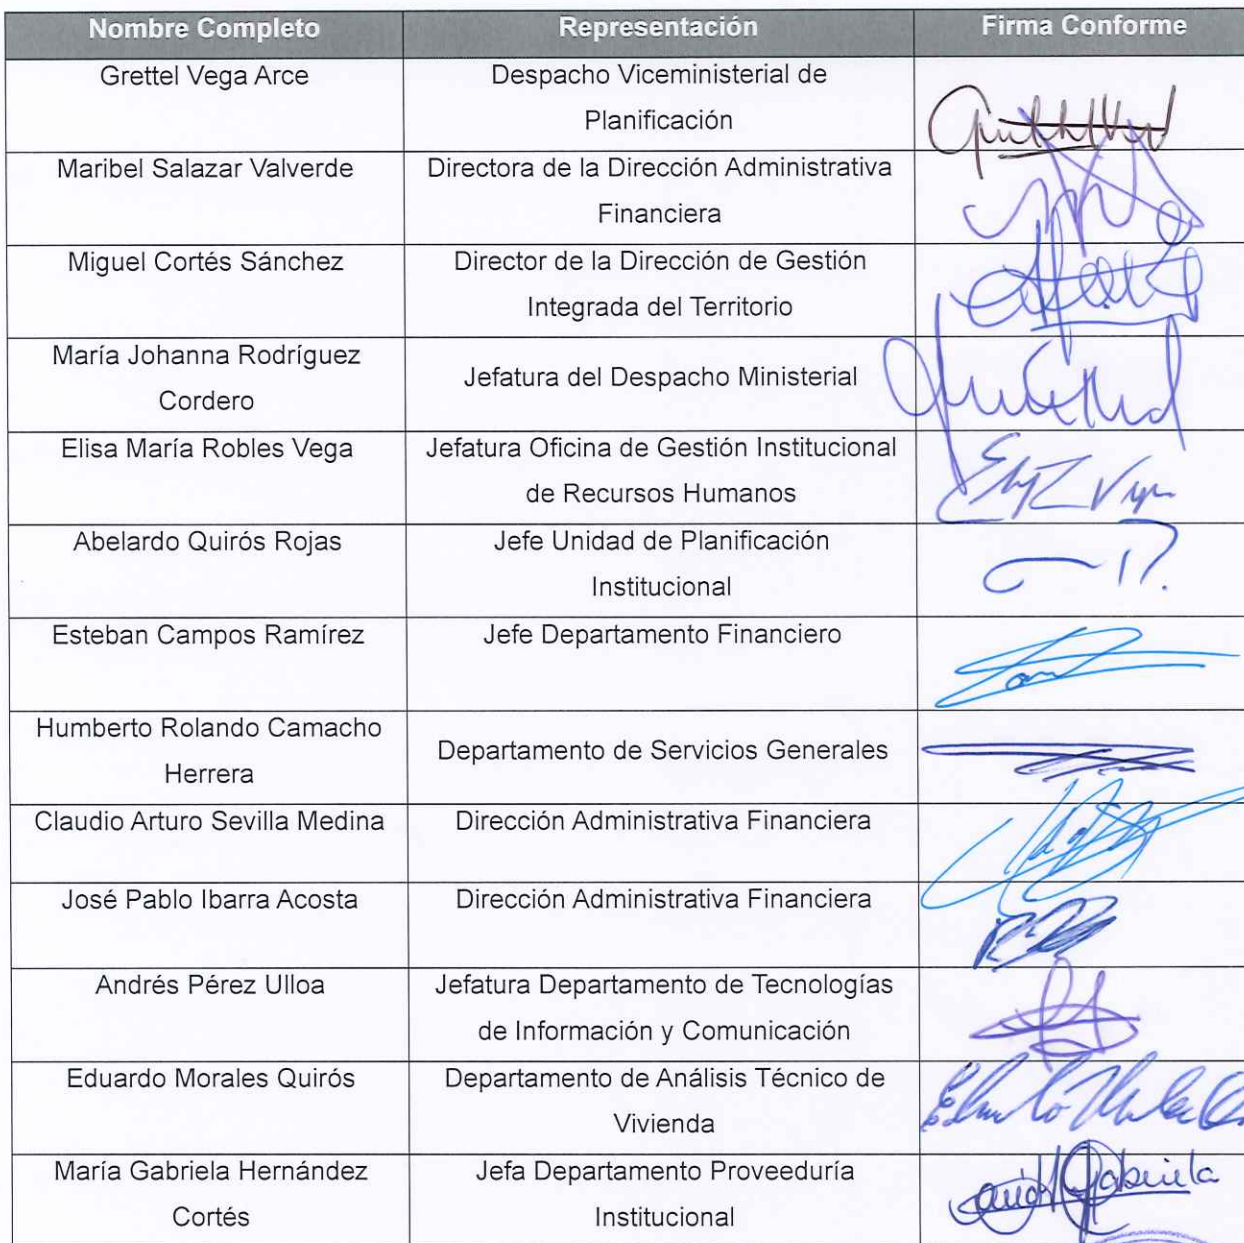 Nombre Completo Representación Firma Conforme
Grettel Vega Arce Despacho Viceministerial de
Planificación
Maribel Salazar Valverde Directora de la Dirección Administrativa
Financiera
Miguel Cortés Sánchez Director de la Dirección de Gestión
Integrada del Territorio
María Johanna Rodríguez
Cordero
Jefatura del Despacho Ministerial
Elisa María Robles Vega Jefatura Oficina de Gestión Institucional
de Recursos Humanos
Abelardo Quirós Rojas Jefe Unidad de Planificación
Institucional
Esteban Campos Ramírez Jefe Departamento Financiero
Humberto Rolando Camacho
Herrera
Departamento de Servicios Generales
Claudio Arturo Sevilla Medina Dirección Administrativa Financiera
José Pablo Ibarra Acosta Dirección Administrativa Financiera
Andrés Pérez Ulloa Jefatura Departamento de Tecnologías
de Información y Comunicación
Eduardo Morales Quirós Departamento de Análisis Técnico de
Vivienda
María Gabriela Hernández
Cortés
Jefa Departamento Proveeduría
Institucional
Gabriela